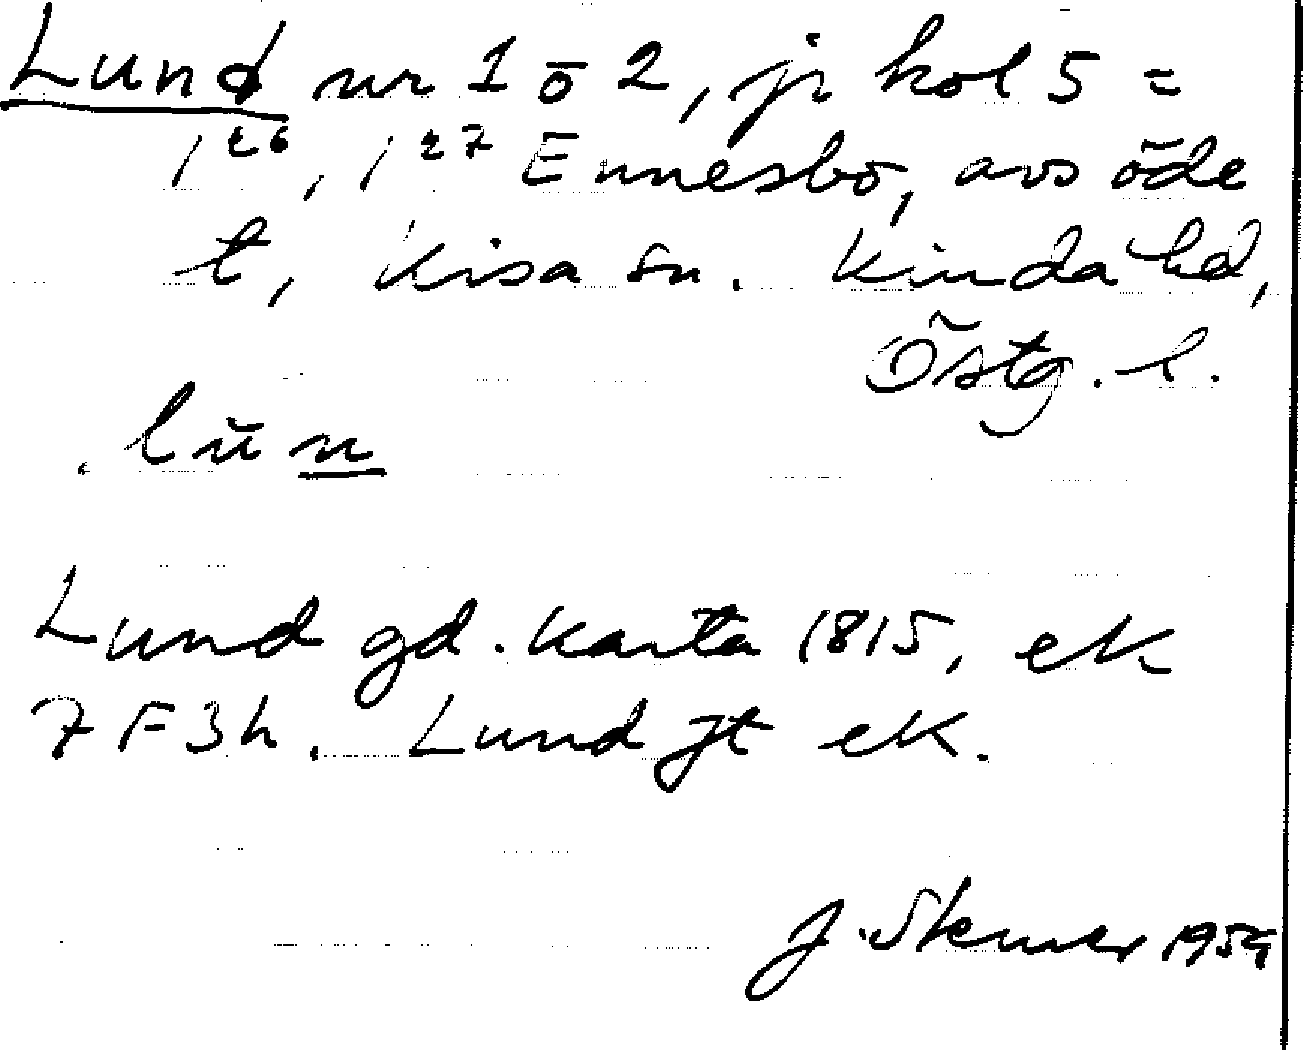 Lund nr 1 o 2, jr kol 5 =
1²⁶, 1²⁷ Ennesbo, avs öde
t, Kisa sn. Kinda hd,
Östg. l.
. lŭn
Lund gd. karta 1815, ek
7 F 3 h. Lund jt ek.
J. 1954